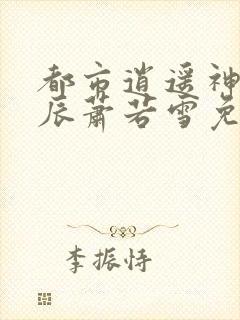 都市逍遥神
辰萧若雪免
李振恃